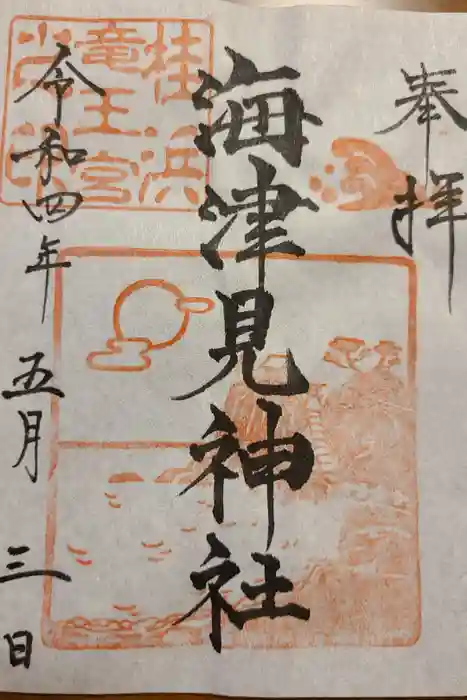 奉拝
海津見神社
令和四年 五月 三日
桂浜
竜王宮